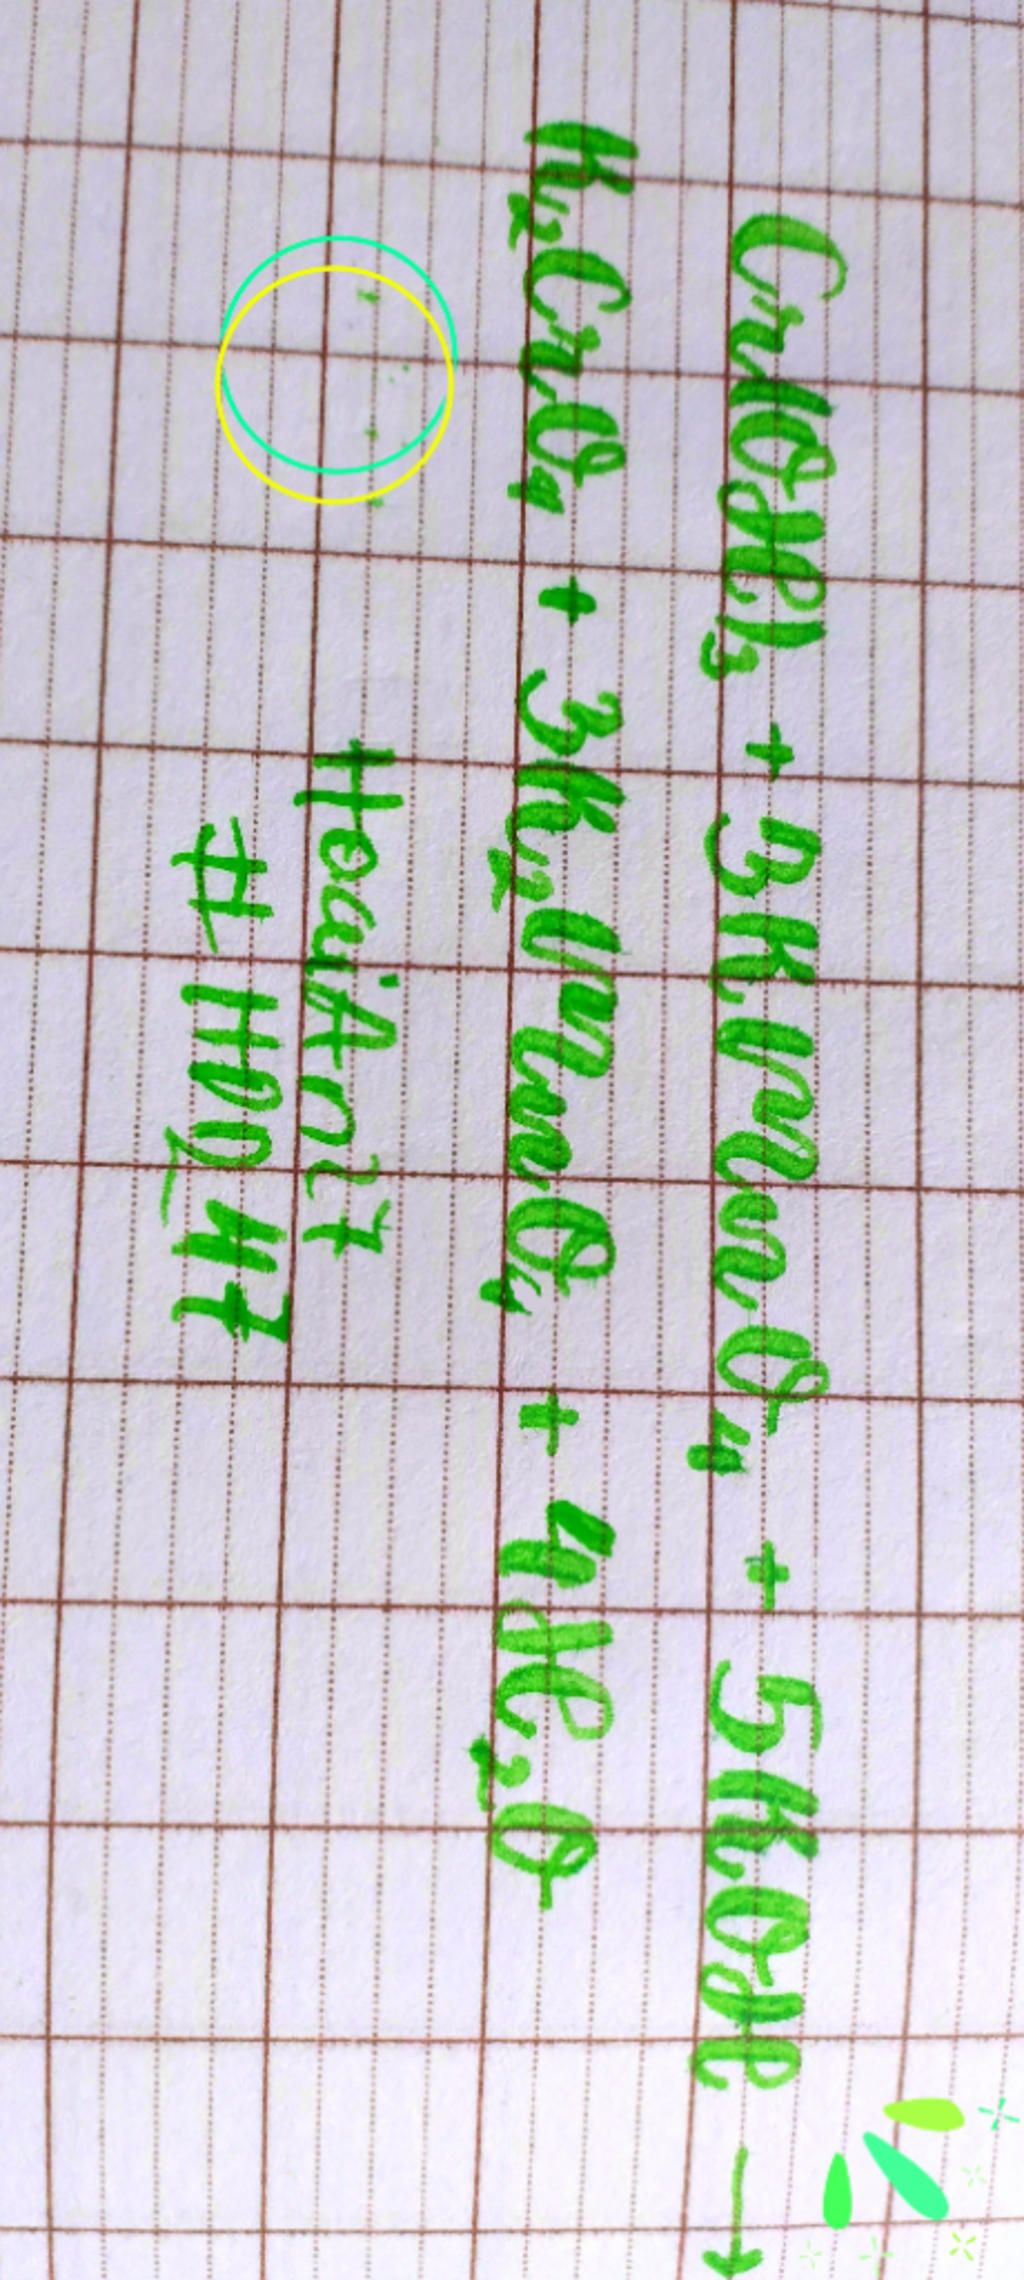 Cr(OH)₃ + 3KMnO₄ + 5KOH →
K₂CrO₄ + 3K₂MnO₄ + 4H₂O
HoaiAni7
#HDD_47